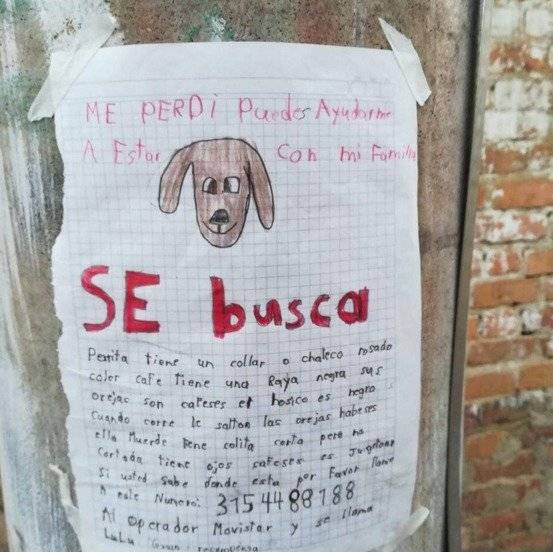 ME PERDI Puedes Ayudarme
A Estar con mi Familia
SE busca
Perrita tiene un collar o chaleco rosado
coler cafe tiene una Raya negra sus
orejas son cafeses el hosico es negro
cuando corre le salton las orejas habeses
ella Muerde tiene colita corta pero no
cortada tiene ojos cafeses es Jugetona
Si usted sabe donde esta por Favor llame
A este Numero: 3154488188
Al operador Movistar y se llama
LuLu Gran recompensa